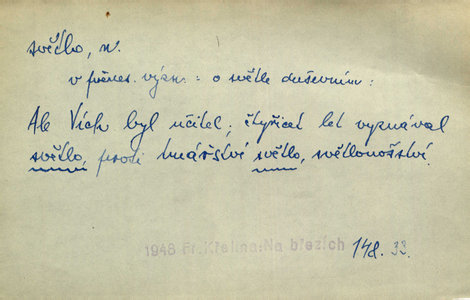 světlo, n.
v přenes. význ.: o světle duševním:
Ale Vích byl učitel; čtyřicet let vyznával
světlo, proti tmářství světlo, světlonošství.
1948 Fr. Křelina: Na březích 148. 33.